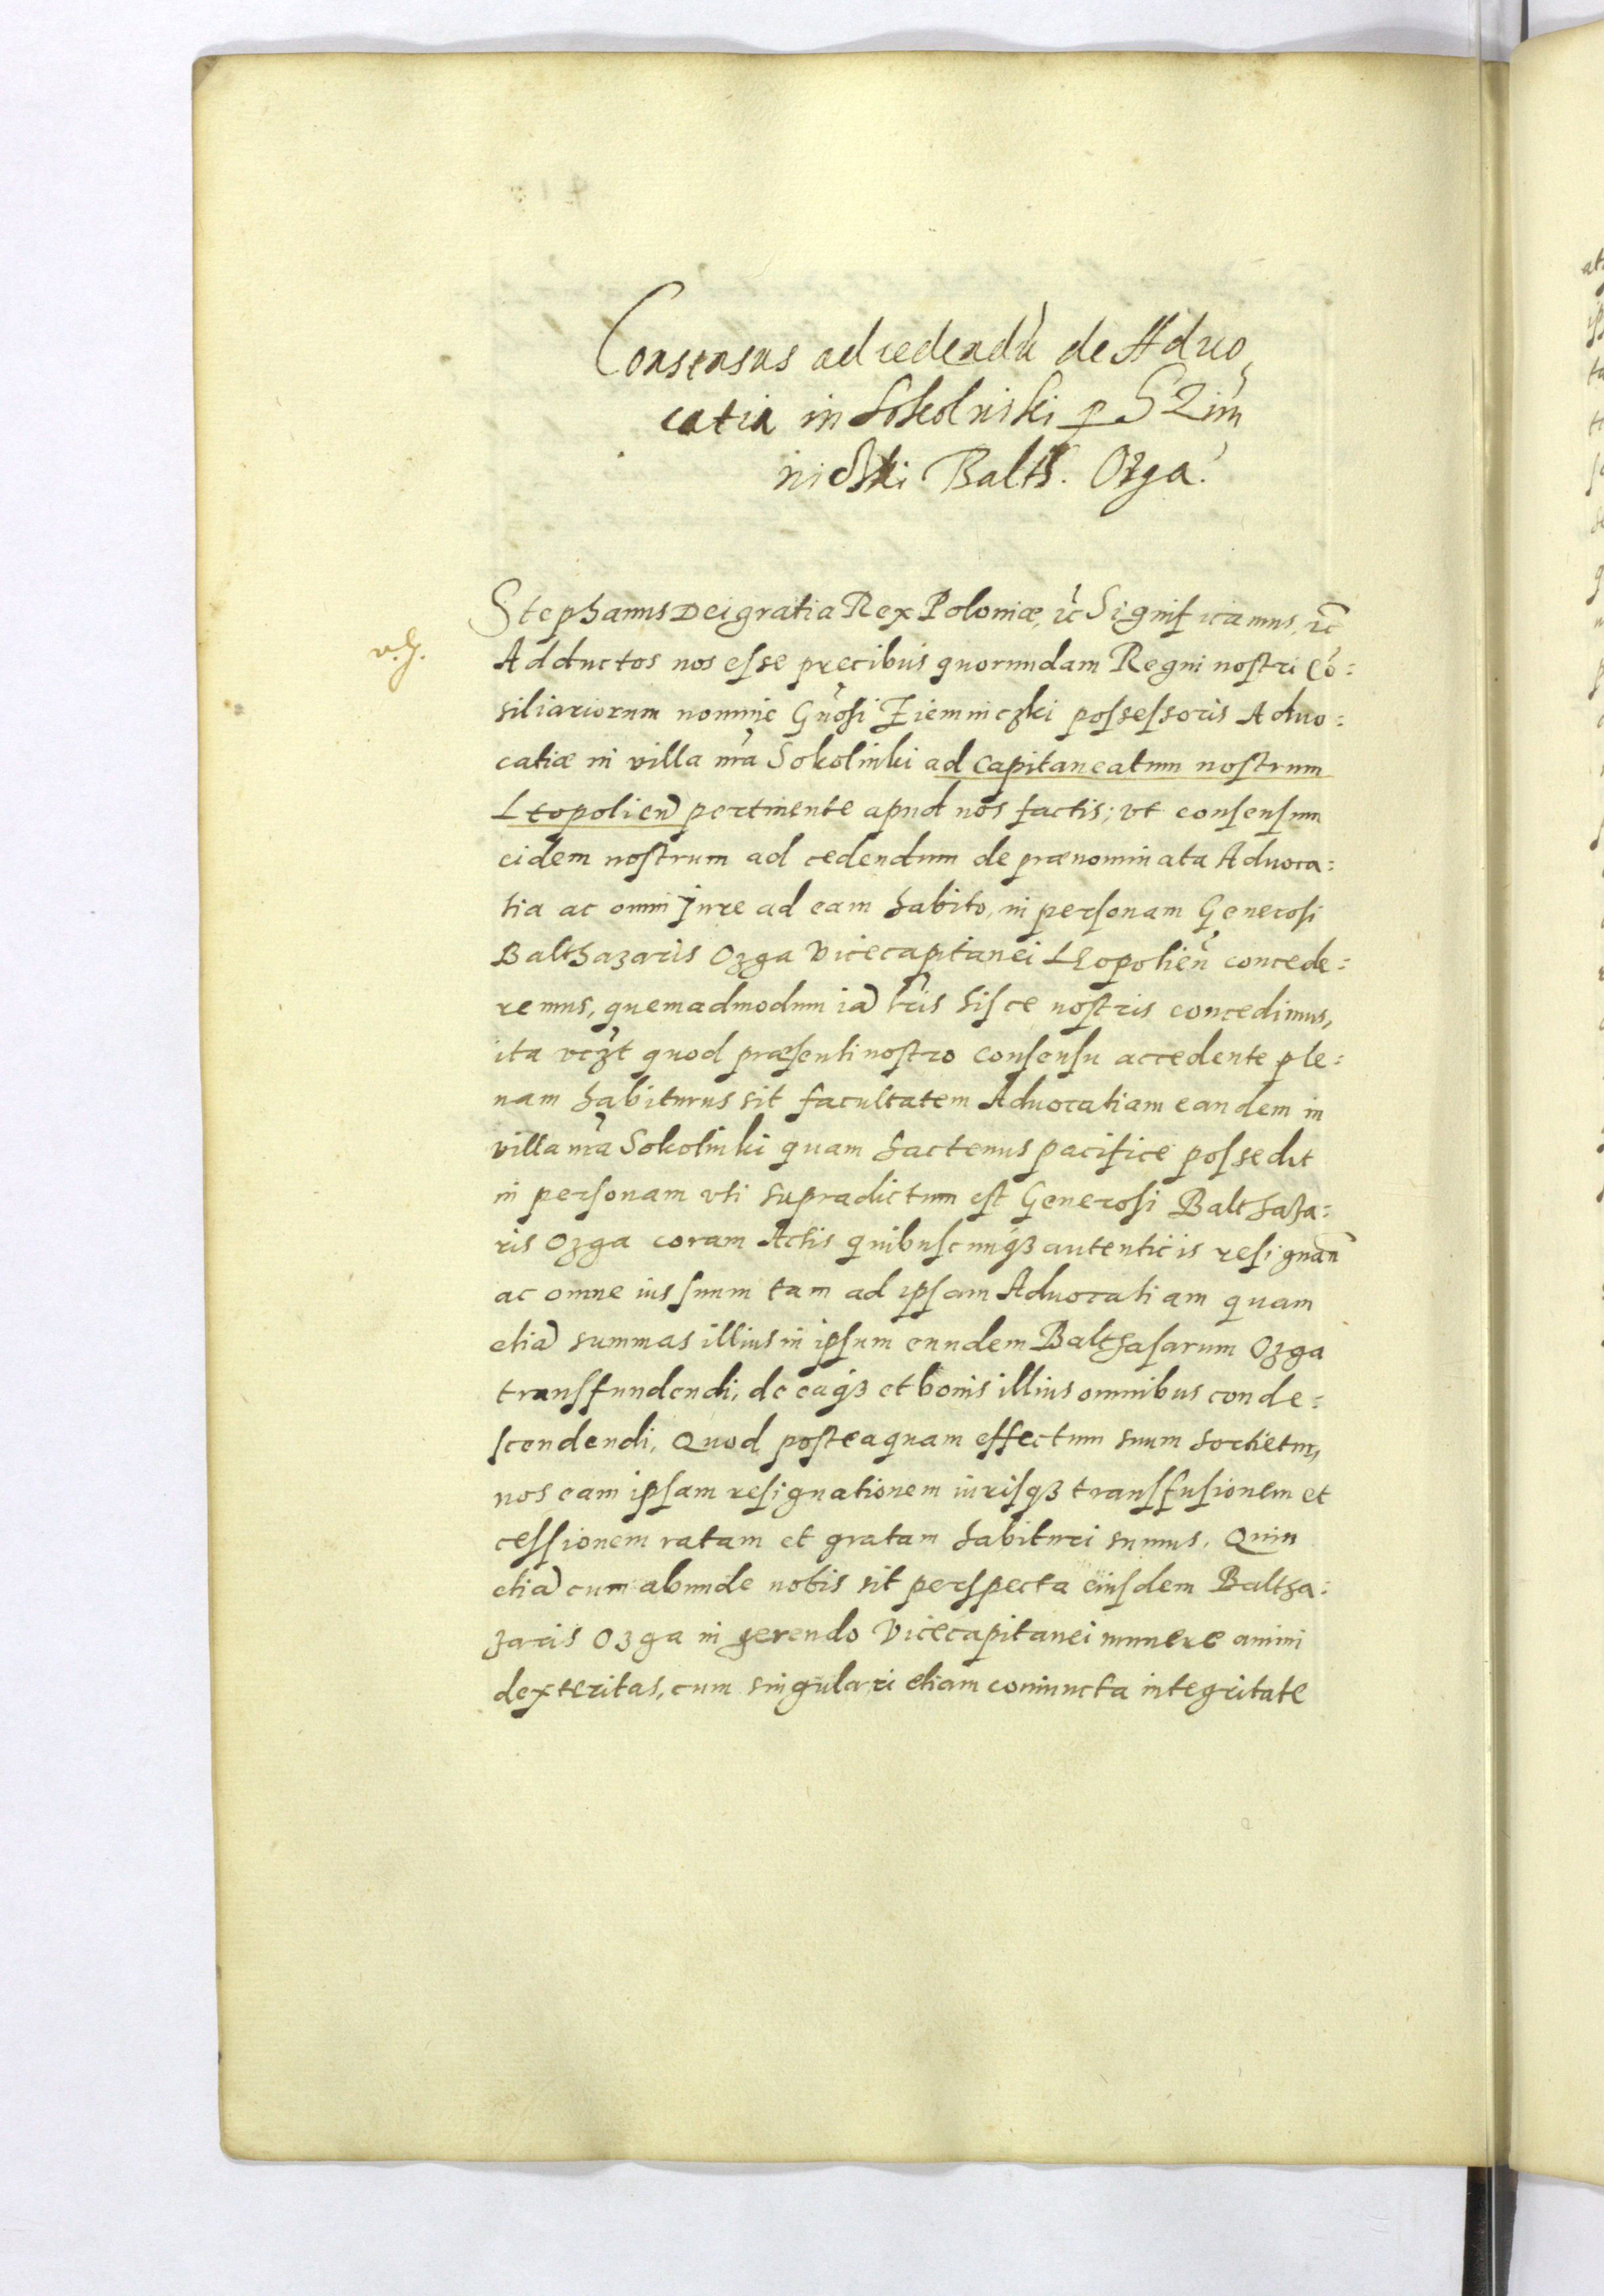 Consensus ad cedendũ de Aduo
catia in Sokolniki p SZim
nicski Balts. Ozga.
Stephanus Dei gratia Rex Poloniæ, ić Significamus, ić
v. g.
Adductos nos esse precibus quorundam Regni nostri Co=
siliariorum nomine Gnosi Ziemniczki possessoris Aduo=
catiæ in villa nra Sokolniki ad Capitaneatum nostrum
Leopolien pertinente apud nos factis; vt consensum
eidem nostrum ad cedendum de prænominata Aduoca=
tia ac omni Jure ad eam habito, in personam Generosi
Balthazaris Ozga Vicecapitanei Leopolien concede=
remus, quemadmodum ia lris hisce nostris concedimus,
ita vczt quod præsenti nostro consensu accedente ple=
nam habiturus sit facultatem Aduocatiam eandem in
villa nra Sokolniki quam hactenus pacifice possedit
in personam vti supradictum est Generosi Balthaza=
ris Ozga coram Actis quibuscunqz autenticis resignan
ac omne ius suum tam ad ipsam Aduocatiam quam
etia summas illius in ipsum eundem Balthasarum Ozga
transfundendi, de eaqz et bonis illius omnibus conde=
scendendi. Quod posteaquam effectum suum sortietur,
nos eam ipsam resignationem iurisqz transfusionem et
cessionem ratam et gratam habituri sumus. Quin
etia cum abunde nobis sit perspecta eiusdem Baltha=
zaris Ozga in gerendo Vicecapitanei munere animi
dexteritas, cum singulari etiam coniuncta integritate